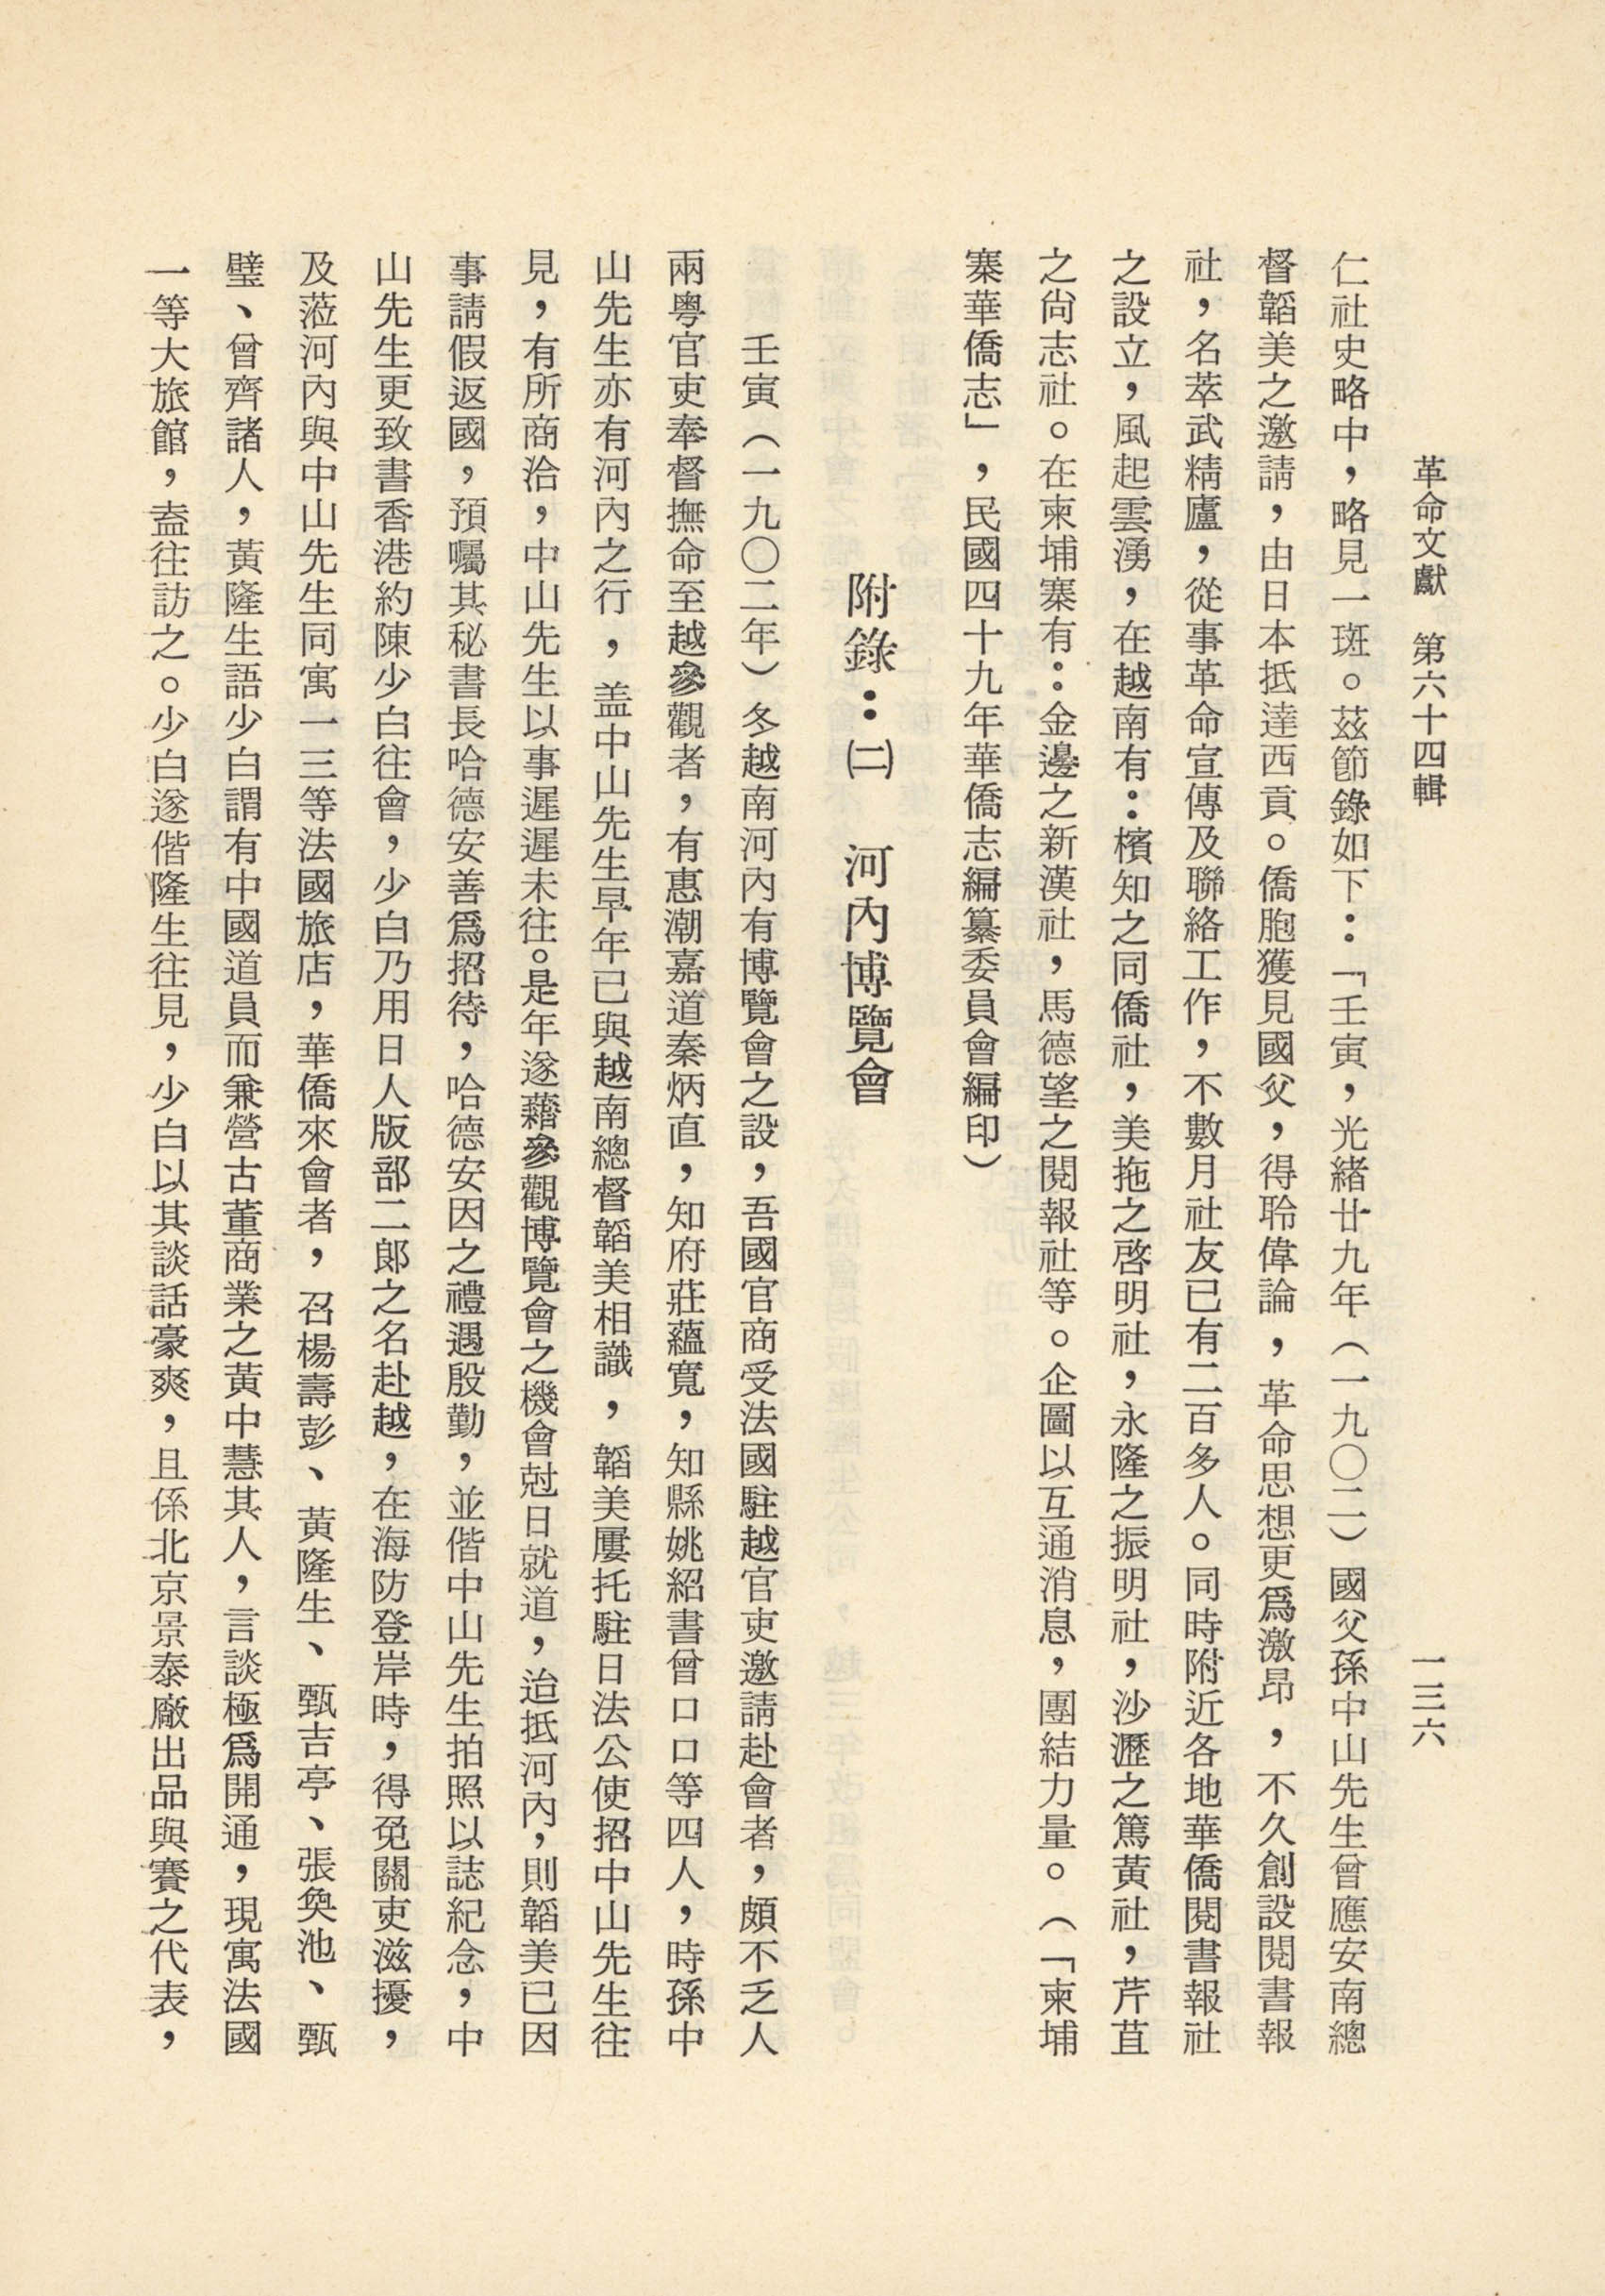 革命文獻　第六十四輯
一三六
仁社史略中，略見一斑。茲節錄如下：「壬寅，光緒廿九年（一九〇二）國父孫中山先生曾應安南總
督韜美之邀請，由日本抵達西貢。僑胞獲見國父，得聆偉論，革命思想更爲激昂，不久創設閱書報
社，名萃武精廬，從事革命宣傳及聯絡工作，不數月社友已有二百多人。同時附近各地華僑閱書報社
之設立，風起雲湧，在越南有：檳知之同僑社，美拖之啓明社，永隆之振明社，沙瀝之篤黃社，芹苴
之尙志社。在柬埔寨有：金邊之新漢社，馬德望之閱報社等。企圖以互通消息，團結力量。（「柬埔
寨華僑志」，民國四十九年華僑志編纂委員會編印）
附錄：㈡　河內博覽會
壬寅（一九〇二年）冬越南河內有博覽會之設，吾國官商受法國駐越官吏邀請赴會者，頗不乏人
兩粵官吏奉督撫命至越參觀者，有惠潮嘉道秦炳直，知府莊蘊寬，知縣姚紹書曾口口等四人，時孫中
山先生亦有河內之行，盖中山先生早年已與越南總督韜美相識，韜美屢托駐日法公使招中山先生往
見，有所商洽，中山先生以事遲遲未往。是年遂藉參觀博覽會之機會尅日就道，迨抵河內，則韜美已因
事請假返國，預囑其秘書長哈德安善爲招待，哈德安因之禮遇殷勤，並偕中山先生拍照以誌紀念，中
山先生更致書香港約陳少白往會，少白乃用日人版部二郞之名赴越，在海防登岸時，得免關吏滋擾，
及蒞河內與中山先生同寓一三等法國旅店，華僑來會者，召楊壽彭、黃隆生、甄吉亭、張奐池、甄
璧、曾齊諸人，黃隆生語少白謂有中國道員而兼營古董商業之黃中慧其人，言談極爲開通，現寓法國
一等大旅館，盍往訪之。少白遂偕隆生往見，少白以其談話豪爽，且係北京景泰廠出品與賽之代表，